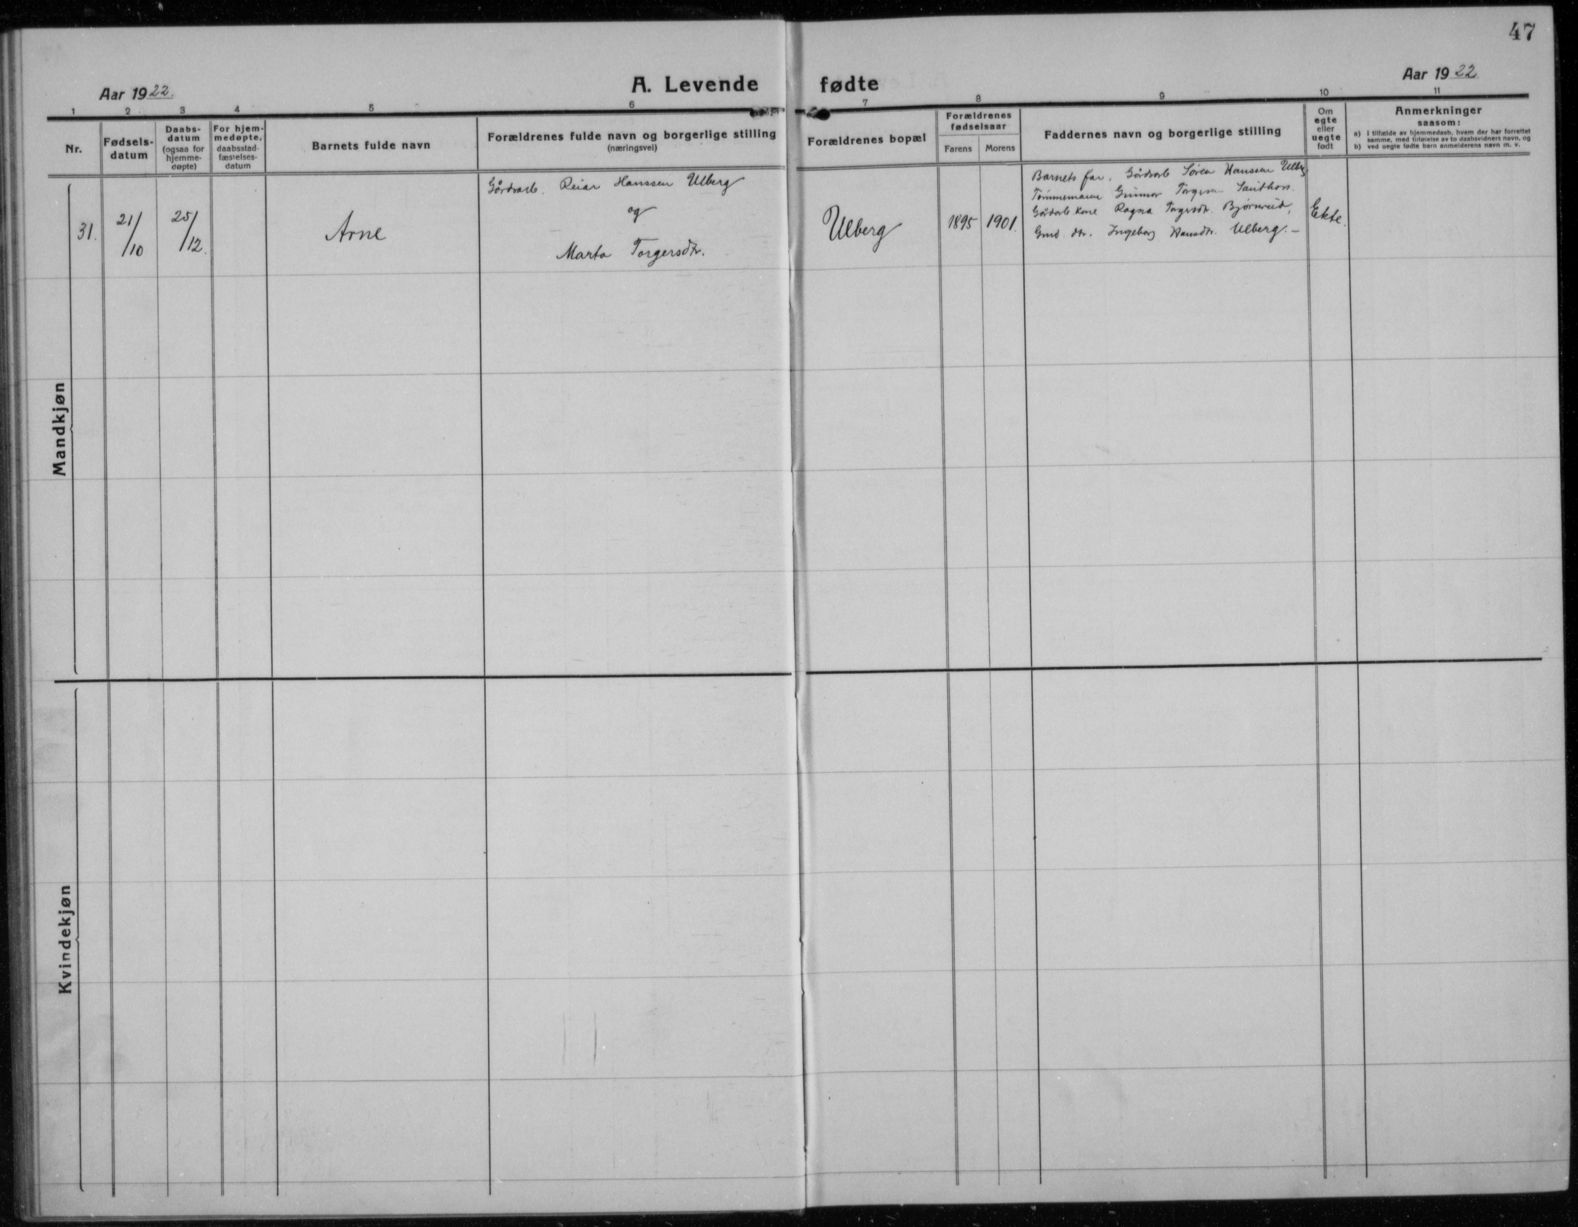 47
Aar 1922.
A. Levende fødte
Aar 1922
1 2 3 4 5 6 7 8 9 10 11
Nr.
Fødsels-
datum
Daabs-
datum
(ogsaa for
hjemme-
døpte)
For hjem-
medøpte,
daabsstad-
fæstelses-
datum
Barnets fulde navn
Forældrenes fulde navn og borgerlige stilling
(næringsvei)
Forældrenes bopæl
Forældrenes
fødselsaar
Farens Morens
Faddernes navn og borgerlige stilling
Om
egte
eller
uegte
født
Anmerkninger
saasom:
a) i tilfælde av hjemmedaab, hvem der har forrettet
samme, med tilføielse av to daabsvidners navn, og
b) ved uegte fødte barn anmelderens navn m. v.
Mandkjøn
31.
21/10
25/12.
Arne
Gårdsarb. Reiar Hanssen Ulberg
og
Marta Torgersdtr.
Ulberg
1895 1901.
Barnets far. Gårdsarb Søren Hanssen Ulberg
Tømmermann Gunnar
Gårdarb. kone Ragna Torgersdtr.
Gmd. dtr. Ingeborg Hansdtr. Ulberg. –
Ekte.
Kvindekjøn